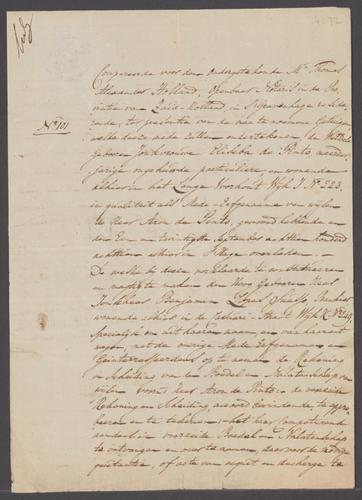 4072
No 101
Compareerde voor den Ondergeteekende Mr Thomas
Alexander Holland, Openbaar Notaris in de Pro
vintie van Zuid-Holland, in S'Gravenhage reside
rende, ter presentie van de nae te noemene Getuigen
welke deeze mede zullen ondertekenen, de
geboren Jonkvrouwe de Pinto, meerder
jarige ongehuwde particuliere en wonende
alhier in het Lange Voorhout Wyk I No 223.
in qualiteit als Mede-Erfgename van wylen
de Heer Aron de Pinto, gewoond hebbende en
den Een en twintigste September achttien honderd
achttien alhier in S'Hage overleden
De welke by deeze verklaarde te constitueren
en magtig te maken den Hoog Geboren Heer
Jonkheer Benjamin Suasso,
wonende alhier in de Straat Wyk No
specialyk om uit haaren naam en van haarent
wegen, met de overige Mede Erfgenamen en
Geinteresseerdens op te nemen de Rekening
en Scheiding van den Boedel en Nalatenschap van
wylen voorn. Heer Aron de Pinto; de voorsz.
Rekening en Scheiding accoord bevindende te appro
beren en te tekenen; het haar Comparante
aandeel in voorsz. Boedel en Nalatenschap
te ontvangen en over te nemen, daar voor de nodige
quitantie, of acte van reçu en decharge te